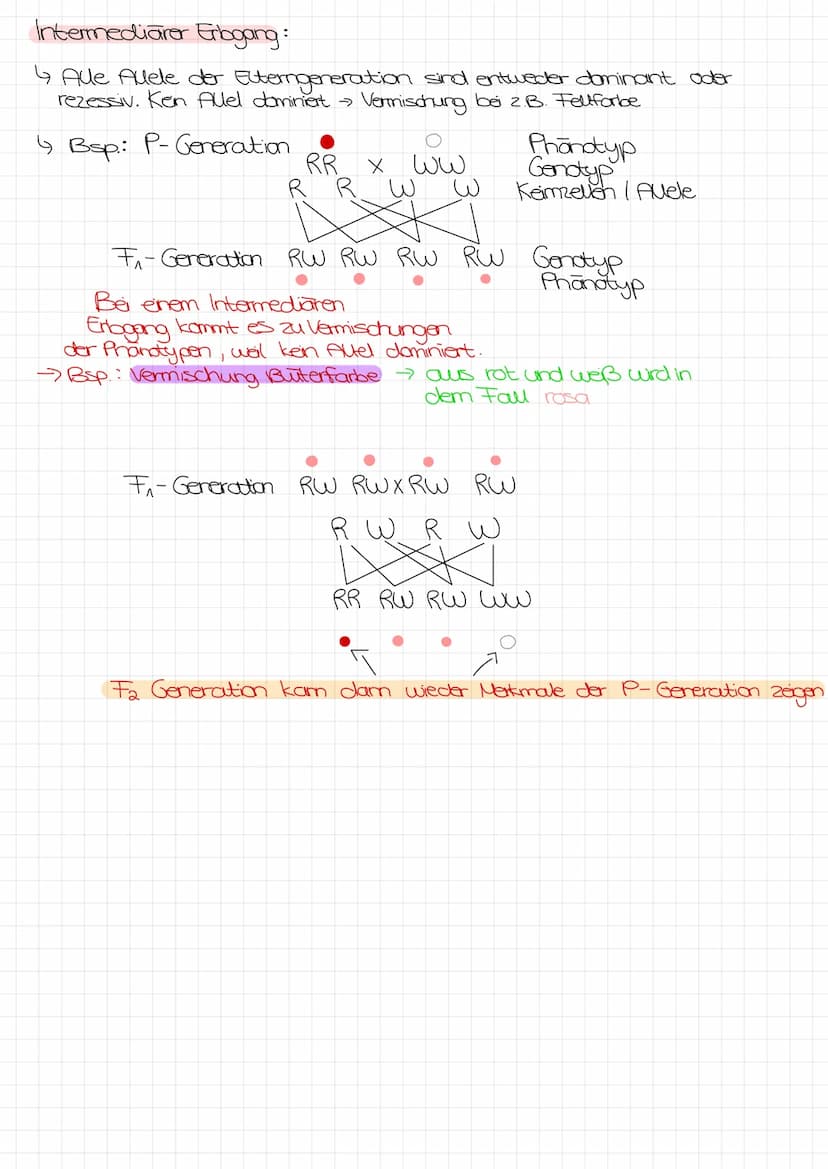 Intermediärer Erbgang:
↳ Alle Allele der Elterngeneration sind entweder dominant oder
rezessiv. Kein Allel dominiert → Vermischung bei z.B. Fellfarbe
↳ Bsp.: P-Generation Phänotyp
RR x WW Genotyp
R R W W Keimzellen / Allele
F₁-Generation RW RW RW RW Genotyp
Phänotyp
Bei einem Intermediären
Erbgang kommt es zu Vermischungen
der Phänotypen, weil kein Allel dominiert.
→ Bsp.: Vermischung Blüterfarbe → aus rot und weiß wird in
dem Fall rosa
F₁-Generation RW RW x RW RW
R W R W
RR RW RW WW
F₂ Generation kann dann wieder Merkmale der P-Generation zeigen